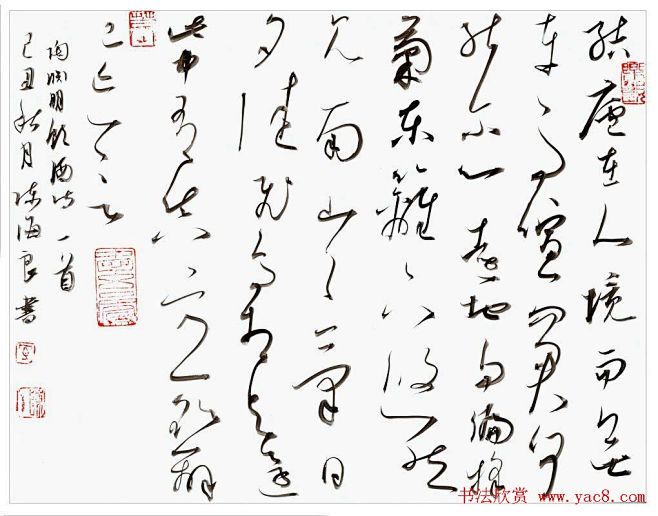 结庐在人境而无
车马喧问君何
能尔心远地自偏採
菊东篱下悠然
见南山山气日
夕佳飞鸟相与还
此中有真意欲辩
已忘言
陶渊明饮酒诗一首
己丑秋月陈海良书
书法欣赏 www.yac8.com